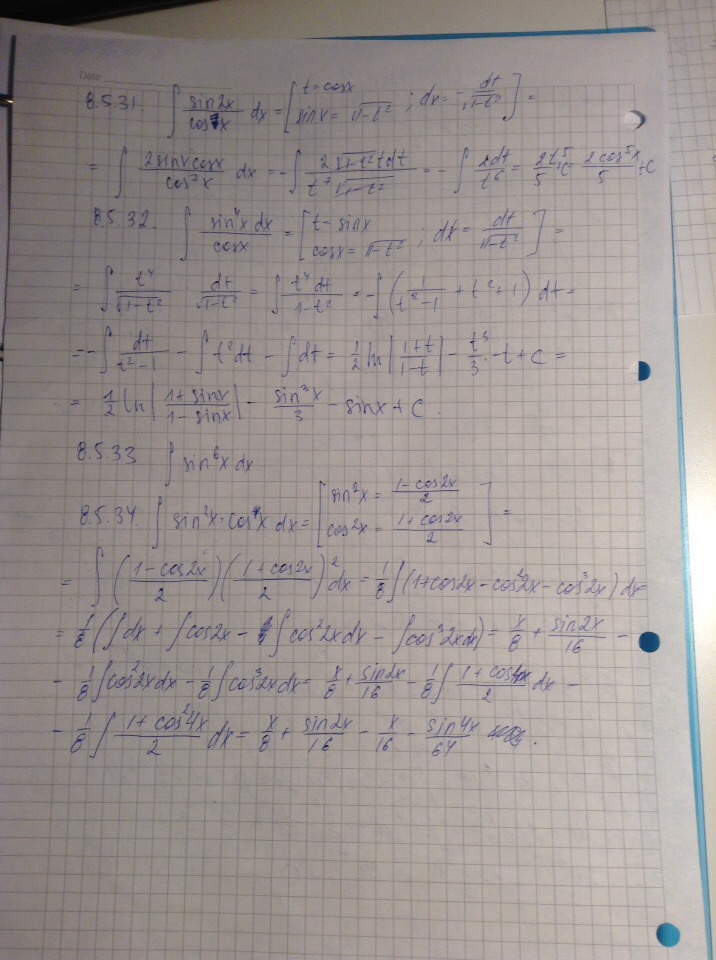 Date
8.5.31. ∫ sin2x/cos⁷x dx = [t=cosx; sinx=√(1-t²); dx=-dt/√(1-t²)] =
= ∫ 2sinxcosx/cos⁷x dx = -∫ 2√(1-t²)tdt/(t⁷√(1-t²)) = -∫ 2dt/t⁶ = 2t⁵/5 +C = 2cos⁵x/5 +C
8.5.32. ∫ sin⁴x dx/cosx = [t-sinx; cosx=√(1-t²); dx=dt/√(1-t²)] =
= ∫ t⁴/√(1-t²) dt/√(1-t²) = ∫ t⁴dt/(1-t²) = -∫(1/(t²-1) + t²+1) dt =
= -∫ dt/(t²-1) - ∫t²dt - ∫dt = 1/2 ln|(1+t)/(1-t)| - t³/3 - t + C =
= 1/2 ln|(1+sinx)/(1-sinx)| - sin³x/3 - sinx + C.
8.5.33 ∫ sin⁶x dx
8.5.34. ∫ sin²x·cos⁴x dx = [sin²x = (1-cos2x)/2; cos²x = (1+cos2x)/2] =
= ∫((1-cos2x)/2)((1+cos2x)/2)² dx = 1/8 ∫(1+cos2x-cos²2x-cos³2x) dx=
= 1/8(∫dx + ∫cos2x - ∫cos²2xdx - ∫cos³2xdx) = x/8 + sin2x/16 -
- 1/8∫cos²2xdx - 1/8∫cos³2xdx = x/8 + sin2x/16 - 1/8∫ (1+cos4x)/2 dx -
- 1/8∫ (1+cos²4x)/2 dx = x/8 + sin2x/16 - x/16 - sin4x/64 .